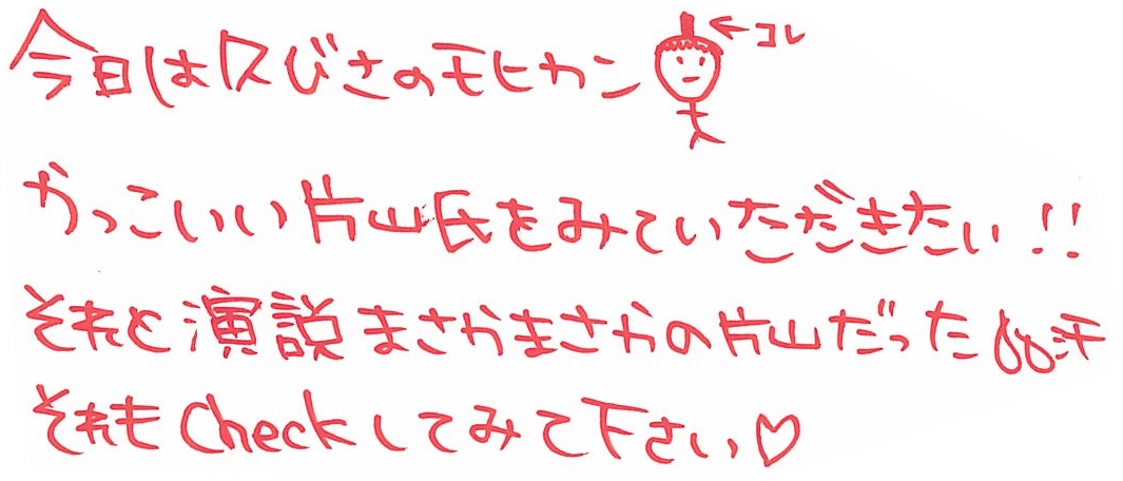 今日は久びさのモヒカン ←コレ
かっこいい片山氏をみていただきたい!!
それと演説まさかまさかの片山だった 汗
それもCheckしてみて下さい♡